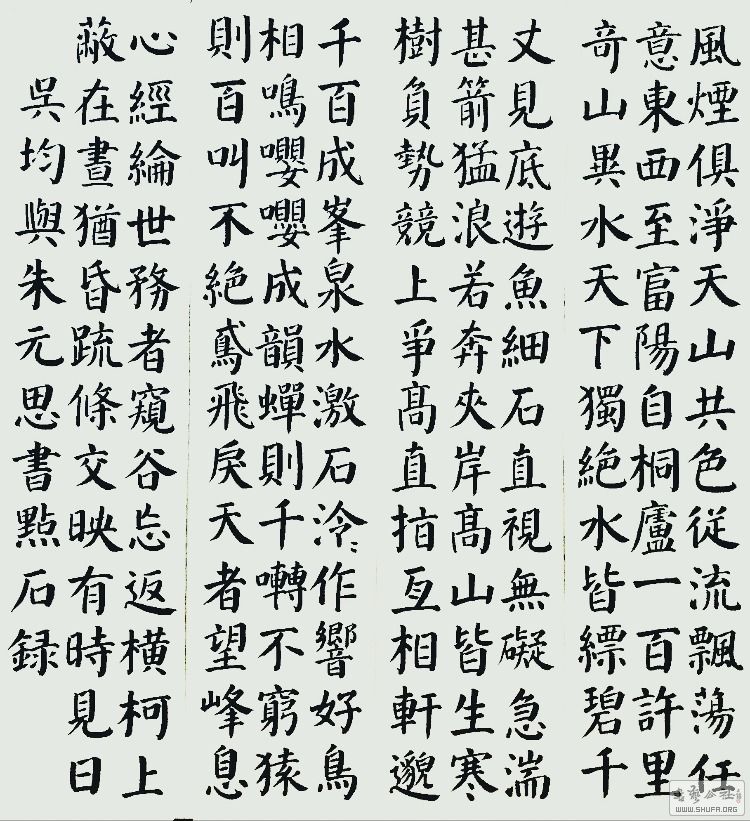 風煙俱淨天山共色從流飄蕩任
意東西至富陽自桐廬一百許里
奇山異水天下獨絕水皆縹碧千
丈見底遊魚細石直視無礙急湍
甚箭猛浪若奔夾岸髙山皆生寒
樹負勢競上爭髙直指互相軒邈
千百成峯泉水激石泠〻作響好鳥
相鳴嚶嚶成韻蟬則千囀不窮猿
則百叫不絕鳶飛戾天者望峰息
心經綸世務者窺谷忘返橫柯上
蔽在晝猶昏疏條交映有時見日
吳均與朱元思書點石録
WWW.SHUFA.ORG